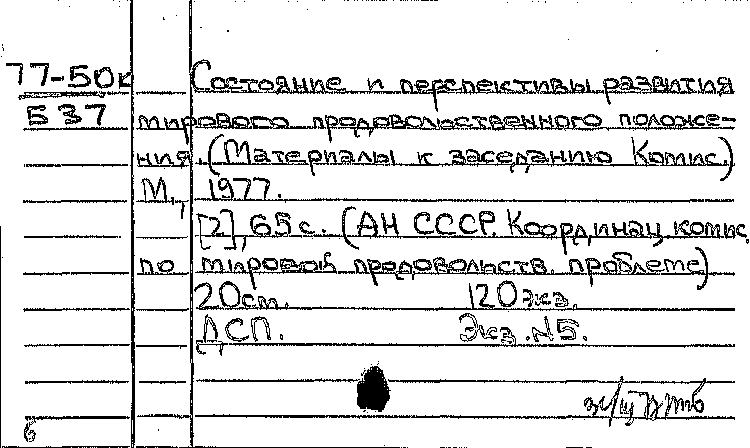 77-50к
537
Состояние и перспективы развития
мирового продовольственного положе-
ния. (Материалы к заседанию Комис.)
М., 1977.
[2], 65 с. (АН СССР. Координац. комис.
по мировой продовольств. проблеме)
20 см. 120 экз.
ДСП. Экз. №5.
6